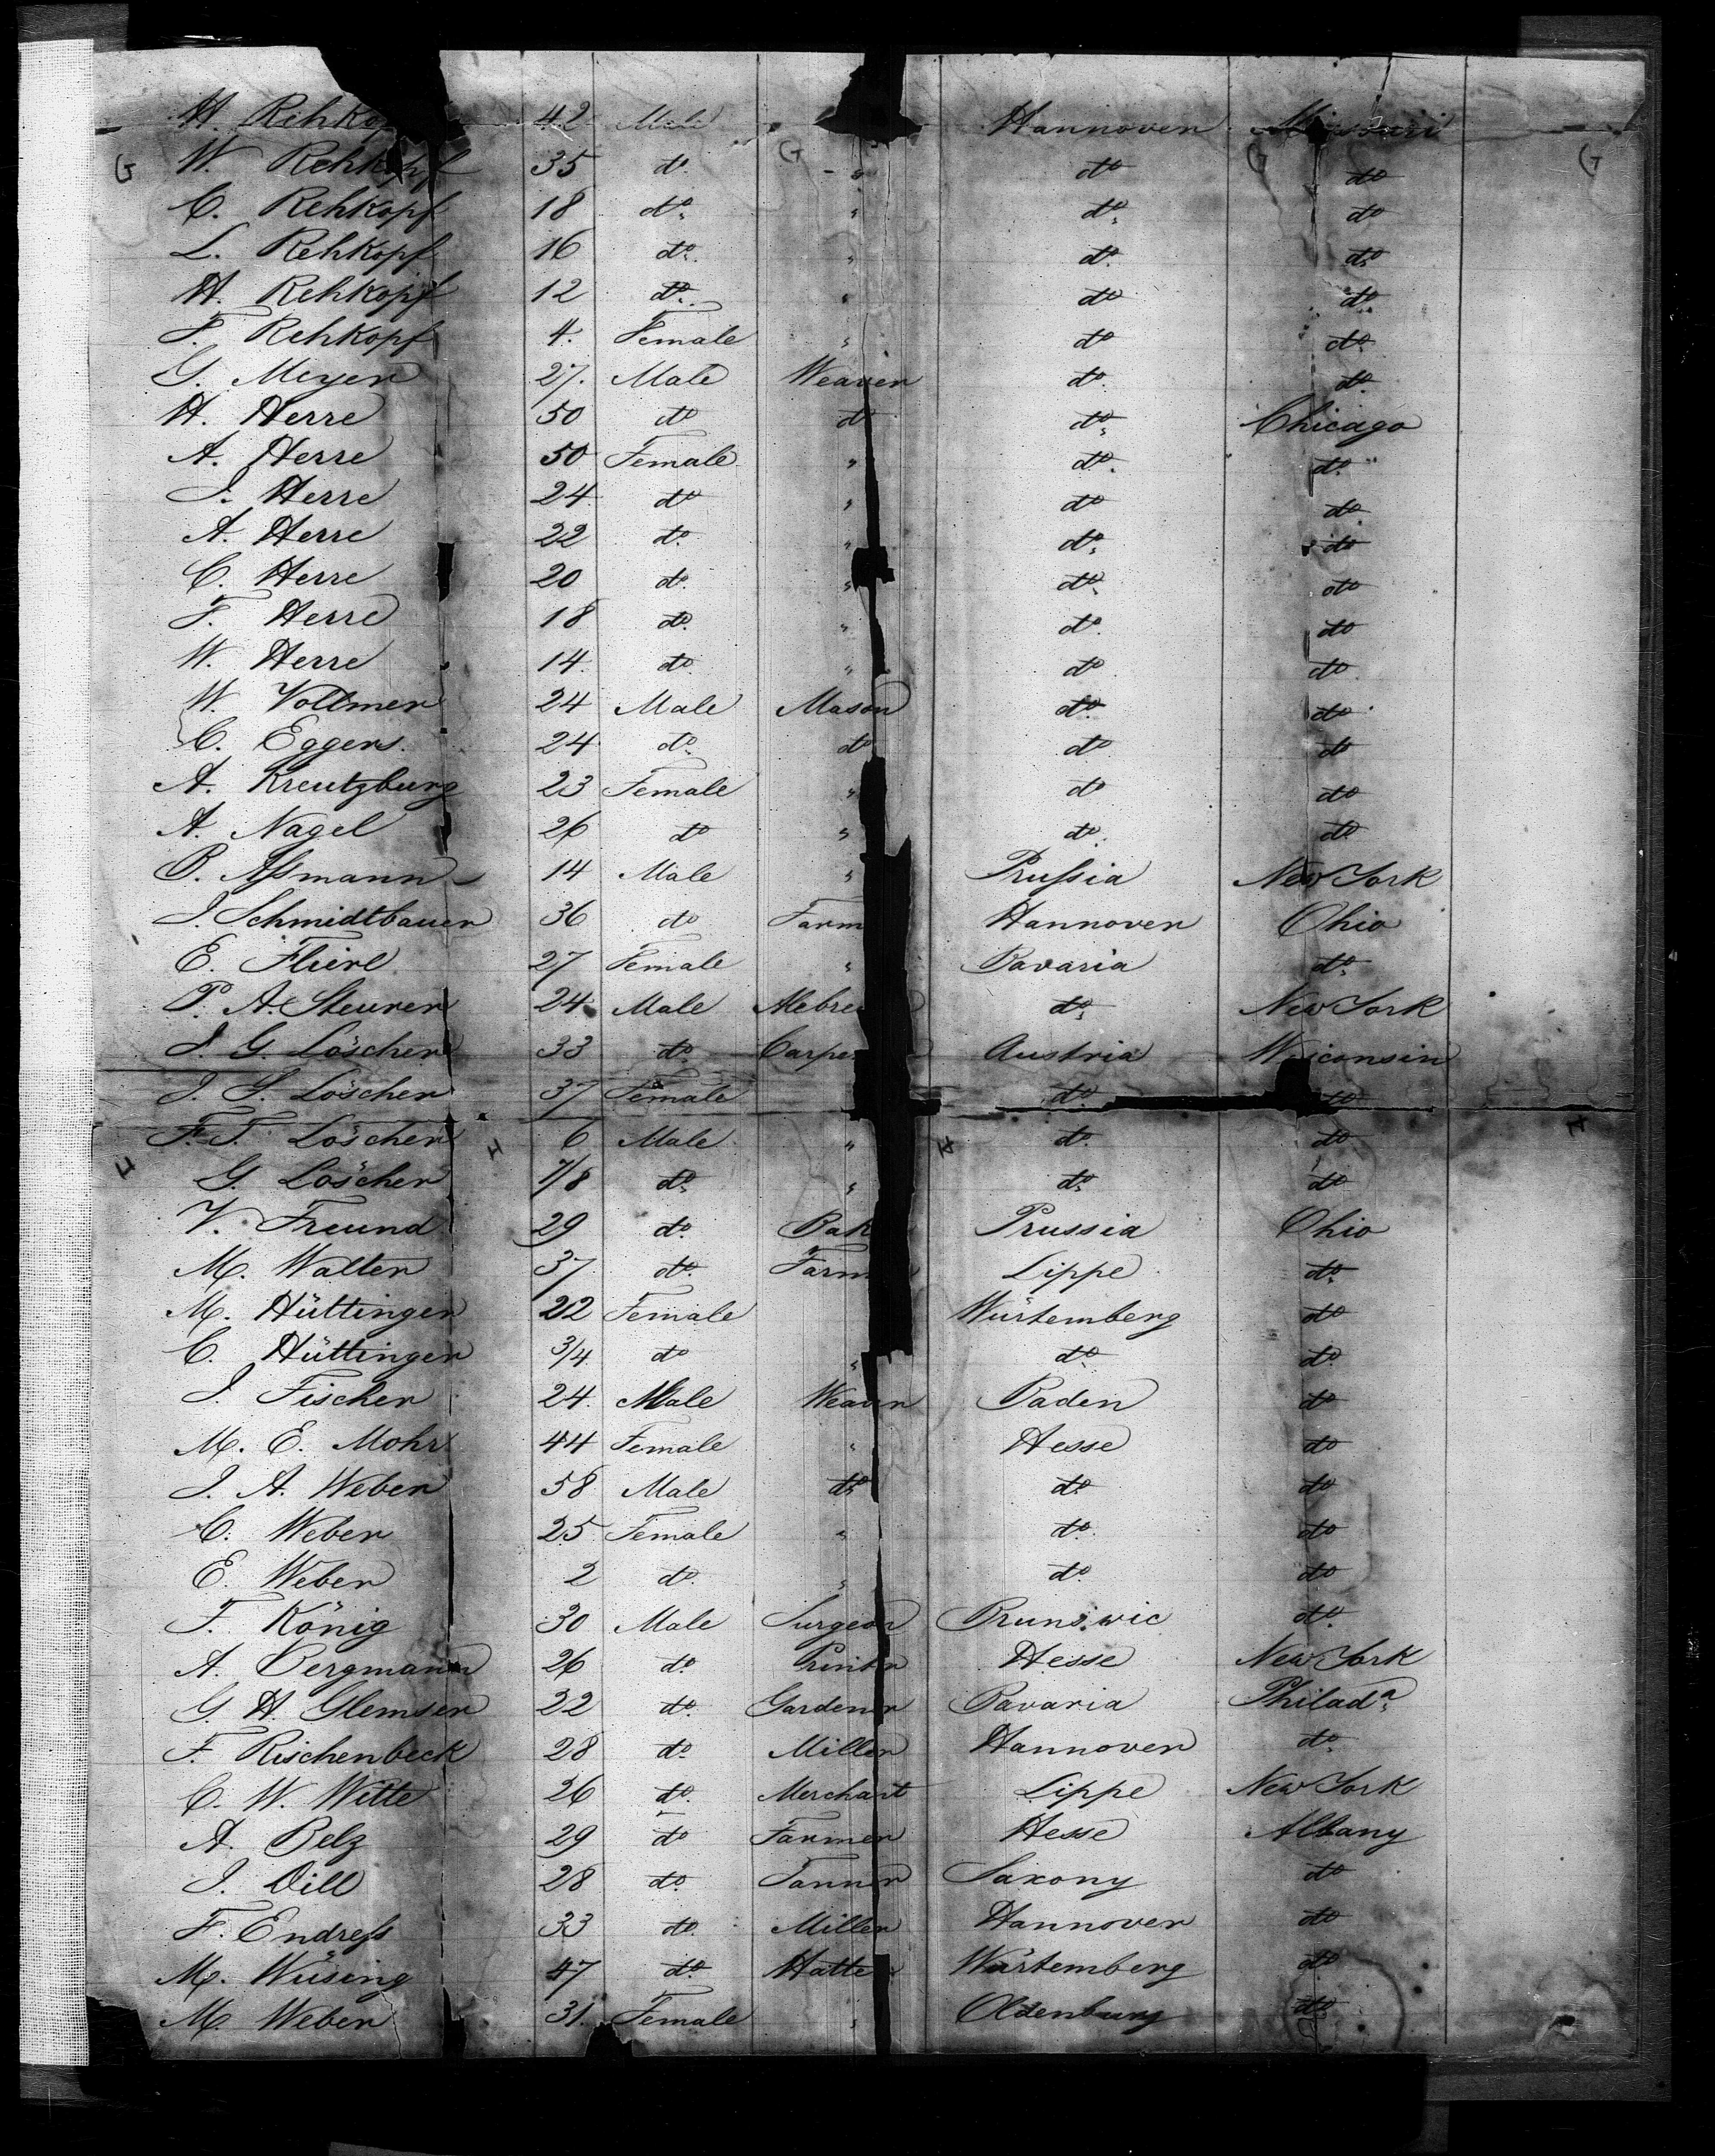 H. Rehko 42 Male Hannover Missouri
G W. Rehkopf 35 do. G " do G do G
C. Rehkopf 18 do. " do. do
L. Rehkopf 16 do. " do. do.
H. Rehkopf 12 do. " do do.
F. Rehkopf 4. Female " do do.
G. Meyer 27. Male Weaver do. do.
H. Herre 50 do do do. Chicago
A. Herre 50 Female " do. do.
J. Herre 24 do " do do.
A. Herre 22 do. " do. do
C. Herre 20 do. " do. do
F. Herre 18 do. " do. do
W. Herre 14. do. " do. do.
W. Vollmer 24 Male Mason do. do.
C. Eggers. 24 do. do do do
A. Kreutzburg 23 Female " do do
A. Nagel 26 do " do. do.
B. Aſsmann 14 Male " Pruſsia New York
J. Schmidtbauer 36 do Farm Hannover Ohio
E. Flierl 27 Female " Bavaria do.
P. A. Steurer 24 Male do. New York
J. G. Löscher 33 do. Carpe Austria Wisconsin
J. S. Löscher 37 Female do. do
F. F. Löscher 6 Male " do. do
G. Löscher 7/8 do. " do. do
V. Freund 29 do. Bak Prussia Ohio
M. Walter 37 do. Farm Lippe do.
M. Hüttinger 22 Female Würtemberg do
C. Hüttinger 3/4 do " do do.
J. Fischer 24. Male Weaver Baden do
M. E. Mohr 44 Female " Hesse do
J. A. Weber 58 Male do. do. do
C. Weber 25 Female " do. do
E. Weber 2 do. " do. do
F. König 30 Male Surgeon Brunswic do.
A. Bergmann 26 do. Printer Hesse New York
G. H. Glemser 22 do. Gardener Bavaria Philada.
F. Rischenbeck 28 do. Miller Hannover do.
C. W. Witte 26 do. Merchant Lippe New York
A. Belz 29 do Farmer Hesse Albany
J. Dill 28 do. Tanner Saxony do
F. Endreſs 33 do. Miller Hannover do
M. Wüsing 47 do. Hatter Würtemberg do.
M. Weber 31. Female " Oldenburg do.